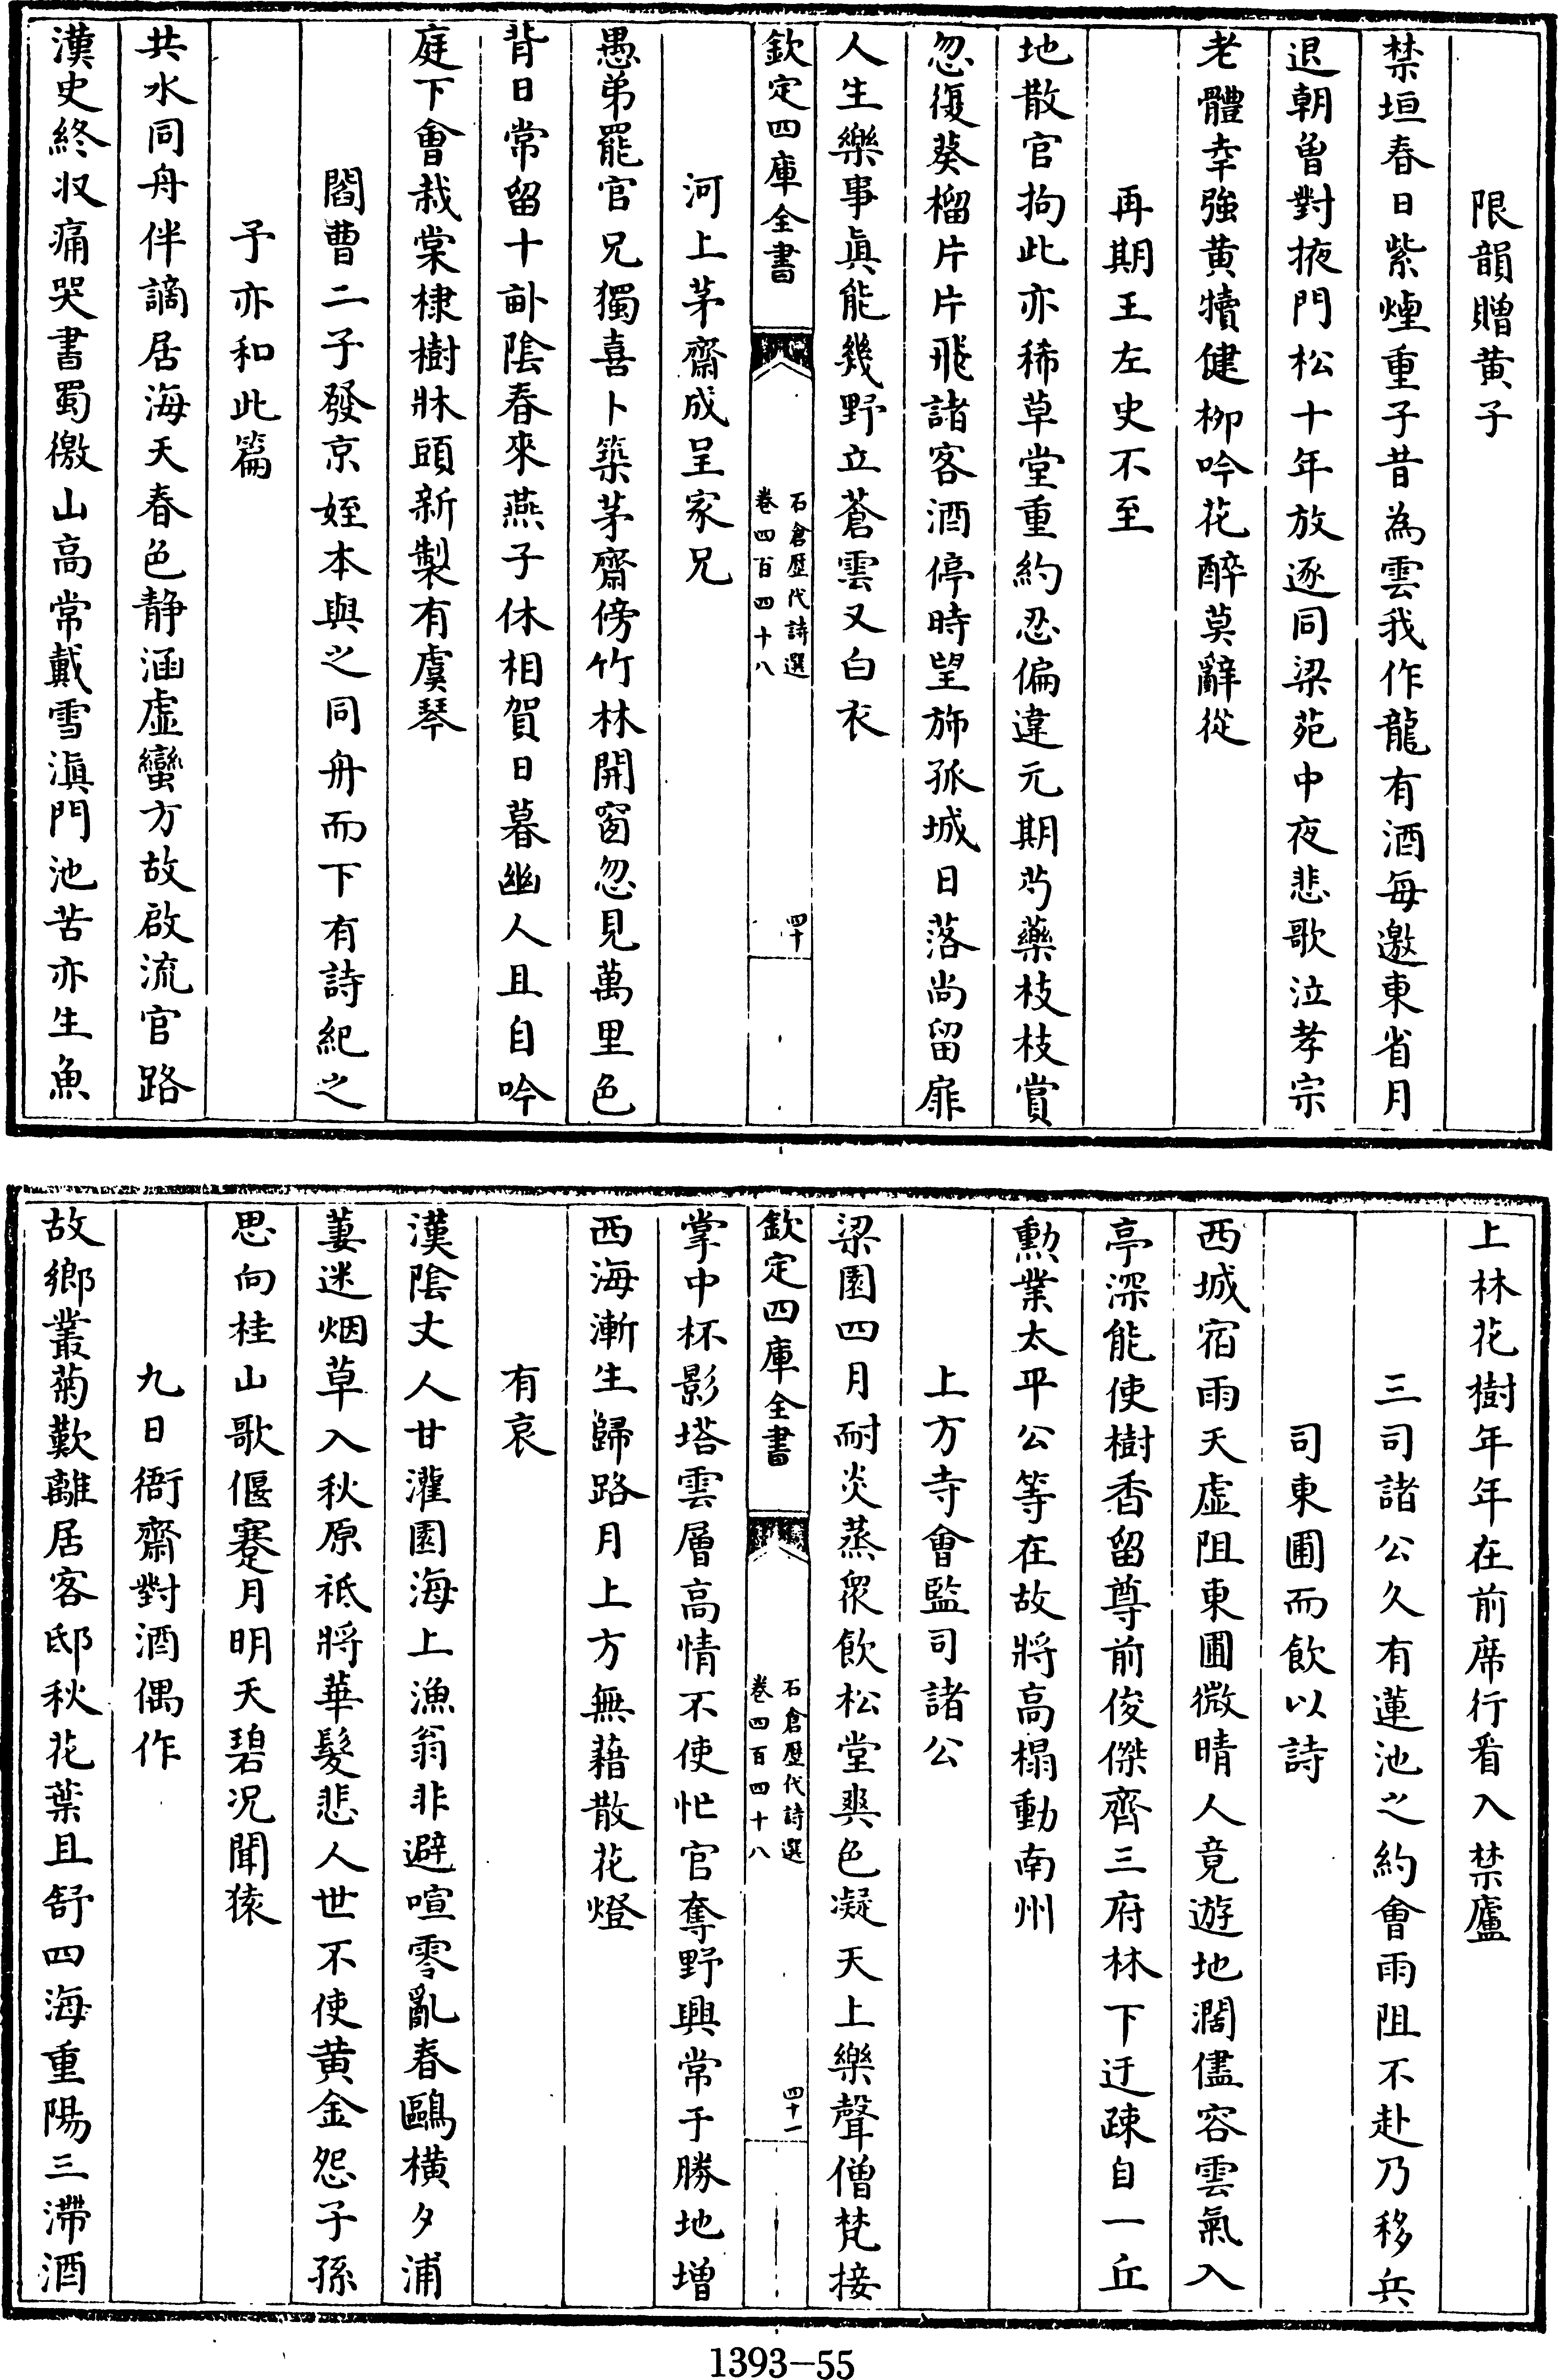 限韻贈黄子
禁垣春日紫煙重子昔為雲我作龍有酒每邀東省月
退朝曾對掖門松十年放逐同梁苑中夜悲歌泣孝宗
老體幸強黄犢健栁吟花醉莫辭從
再期王左史不至
地散官拘此亦稀草堂重約忍偏違元期芍藥枝枝賞
忽復葵榴片片飛諸客酒停時望斾孤城日落尚留扉
人生樂事眞能幾野立蒼雲又白衣
欽定四庫全書
石倉歴代詩選
卷四百四十八
四十
河上茅齋成呈家兄
愚弟罷官兄獨喜卜築茅齋傍竹林開窗忽見萬里色
背日常留十畝陰春來燕子休相賀日暮幽人且自吟
庭下會栽棠棣樹牀頭新製有虞琴
閻曹二子發京姪本與之同舟而下有詩紀之
予亦和此篇
共水同舟伴謫居海天春色静涵虚蠻方故啟流官路
漢史終收痛哭書蜀徼山高常戴雪滇門池苦亦生魚
上林花樹年年在前席行看入禁廬
三司諸公久有蓮池之約會雨阻不赴乃移兵
司東圃而飲以詩
西城宿雨天虚阻東圃微晴人竟遊地濶儘容雲氣入
亭深能使樹香留尊前俊傑齊三府林下迂疎自一丘
勲業太平公等在故將高榻動南州
上方寺會監司諸公
梁園四月耐炎蒸衆飲松堂爽色凝天上樂聲僧梵接
欽定四庫全書
石倉歴代詩選
卷四百四十八
四十一
掌中杯影塔雲層高情不使忙官奪野興常于勝地增
西海漸生歸路月上方無藉散花燈
有哀
漢陰丈人甘灌園海上漁翁非避喧零亂春鷗横夕浦
萋迷烟草入秋原祗將華髮悲人世不使黄金怨子孫
思向桂山歌偃蹇月明天碧况聞猿
九日衙齋對酒偶作
故鄉叢菊歎離居客邸秋花葉且舒四海重陽三滯酒
1393-55